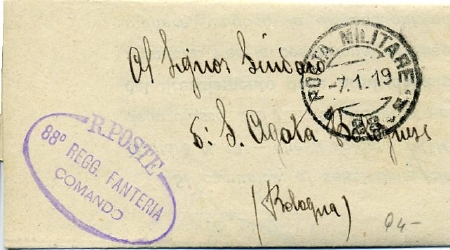 Al Signor Sindaco
POSTA MILITARE
-7.1.19
88
di S. Agata Bolognese
R. POSTE
88º REGG. FANTERIA
COMANDO
(Bologna)
94-